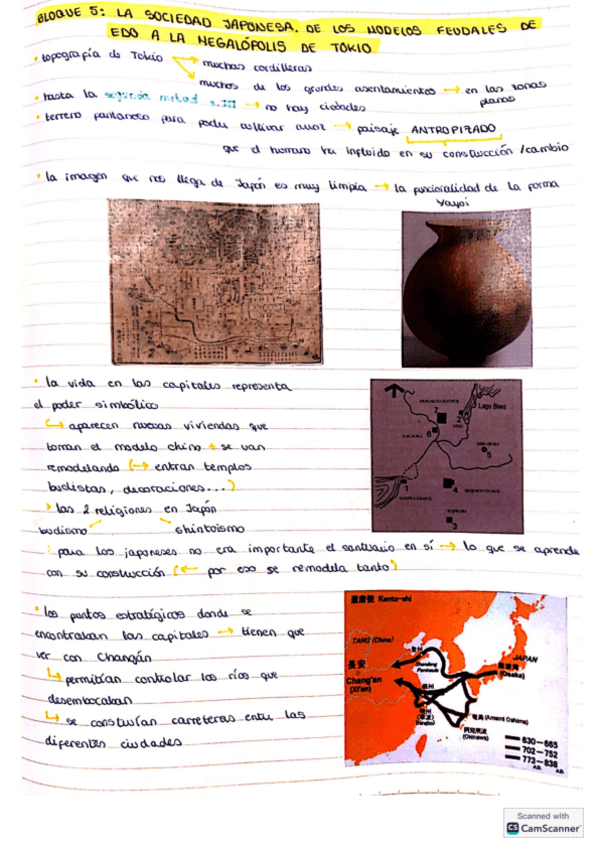 BLOQUE 5: LA SOCIEDAD JAPONESA. DE LOS MODELOS FEUDALES DE
EDO A LA MEGALÓPOLIS DE TOKIO
topografía de Tokio → muchas cordilleras
muchos de los grandes asentamientos → en las zonas
planas
hasta la segunda mitad s.III → no hay ciudades
terreno pantanoso para poder cultivar arroz → paisaje ANTROPIZADO
que el humano ha influido en su construcción / cambio
la imagen que nos llega de Japón es muy limpia → la funcionalidad de la forma
Yayoi
la vida en las capitales representa
el poder simbólico
↳ aparecen nuevas viviendas que
toman el modelo chino + se van
remodelando (→ entran templos
budistas, decoraciones...)
> las 2 religiones en Japón
budismo shintoismo
para los japoneses no era importante el santuario en sí → lo que se aprende
con su construcción (← por eso se remodela tanto)
Lago Biwa
7
2
6
5
1
4
3
los puntos estratégicos donde se
encontraban las capitales → tienen que
ver con Changán
↳ permitían controlar los ríos que
desembocaban
↳ se construían carreteras entre las
diferentes ciudades
遣唐使 Kento-shi
TANG (China)
長安
Chang'an
(Xi'an)
Shandong
Peninsula
JAPAN
(Osaka)
(Amami Oshima)
(Okinawa)
630—665
702—752
773—838
A.D. A.D.
Scanned with
CS CamScanner